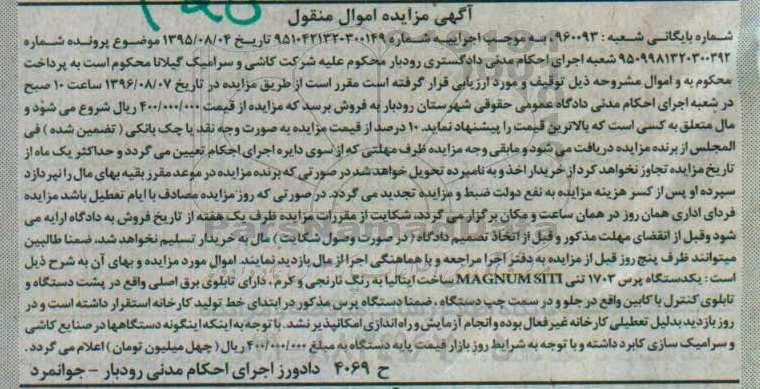 آگهی مزایده اموال منقول
شماره بایگانی شعبه : ۹۶۰۰۹۳، به موجب اجراییه شماره ۹۵۱۰۴۲۱۳۲۰۳۰۰۱۴۹ تاریخ ۱۳۹۵/۰۸/۰۴ موضوع پرونده شماره
۹۵۰۹۹۸۱۳۲۰۳۰۰۳۹۲ شعبه اجرای احکام مدنی دادگستری رودبار محکوم علیه شرکت کاشی و سرامیک گیلانا محکوم است به پرداخت
محکوم به و اموال مشروحه ذیل توقیف و مورد ارزیابی قرار گرفته است مقرر است از طریق مزایده در تاریخ ۱۳۹۶/۰۸/۰۷ ساعت ۱۰ صبح
در شعبه اجرای احکام مدنی دادگاه عمومی حقوقی شهرستان رودبار به فروش برسد که مزایده از قیمت ۴۰۰/۰۰۰/۰۰۰ ریال شروع می شود و
مال متعلق به کسی است که بالاترین قیمت را پیشنهاد نماید. ۱۰ درصد از قیمت مزایده به صورت وجه نقد یا چک بانکی ( تضمین شده ) فی
المجلس از برنده مزایده دریافت می شود و مابقی وجه مزایده ظرف مهلتی که از سوی دایره اجرای احکام تعیین می گردد و حداکثر یک ماه از
تاریخ مزایده تجاوز نخواهد کرد از خریدار اخذ و به نامبرده تحویل خواهد شد در صورتی که برنده مزایده در موعد مقرر بقیه بهای مال را نپردازد
سپرده او پس از کسر هزینه مزایده به نفع دولت ضبط و مزایده تجدید می گردد. در صورتی که روز مزایده مصادف با ایام تعطیل باشد مزایده
فردای اداری همان روز در همان ساعت و مکان برگزار می گردد، شکایت از مقررات مزایده ظرف یک هفته از تاریخ فروش به دادگاه ارایه می
شود وقبل از انقضای مهلت مذکور و قبل از اتخاذ تصمیم دادگاه ( در صورت وصول شکایت ) مال به خریدار تسلیم نخواهد شد، ضمنا طالبین
میتوانند ظرف پنج روز قبل از مزایده به دفتر اجرا مراجعه و با هماهنگی اجرا از مال بازدید نمایند. اموال مورد مزایده و بهای آن به شرح ذیل
است : یکدستگاه پرس ۱۷۰۳ تنی MAGNUM SITI ساخت ایتالیا به رنگ نارنجی و کرم ، دارای تابلوی برق اصلی واقع در پشت دستگاه و
تابلوی کنترل با کابین واقع در جلو و در سمت چپ دستگاه ، ضمنا دستگاه پرس مذکور در ابتدای خط تولید کارخانه استقرار داشته است و در
روز بازدید بدلیل تعطیلی کارخانه غیرفعال بوده و انجام آزمایش و راه اندازی امکانپذیر نشد. با توجه به اینکه اینگونه دستگاهها در صنایع کاشی
و سرامیک سازی کابرد داشته و با توجه به شرایط روز بازار قیمت پایه دستگاه به مبلغ ۴۰۰/۰۰۰/۰۰۰ ریال (چهل میلیون تومان) اعلام می گردد .
ح ۴۰۶۹ دادورز اجرای احکام مدنی رودبار - جوانمرد